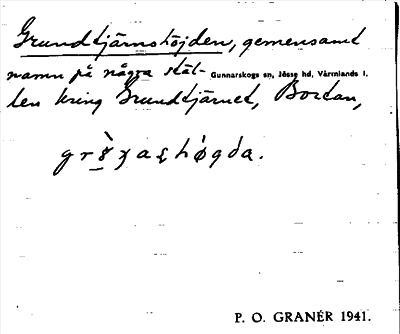 Grundtjärnshöjden, gemensamt
namn på några stäl- Gunnarskogs sn, Jösse hd, Värmlands l.
len kring Grundtjärnet, Bortan,
P. O. GRANÉR 1941.